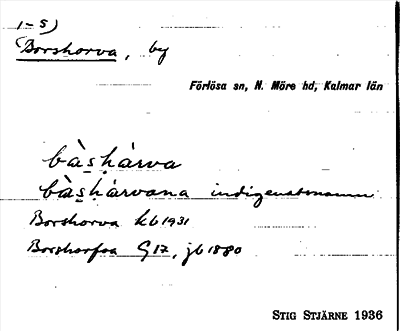 1-5)
Borshorva, by
Förlösa sn, N. Möre hd, Kalmar län
bàs̱ḥàrva
bàs̱ḥàrvana indigenatsnamn
Borshorva kb 1931
Borshorfva G17, jb 1880
STIG STJÄRNE 1936